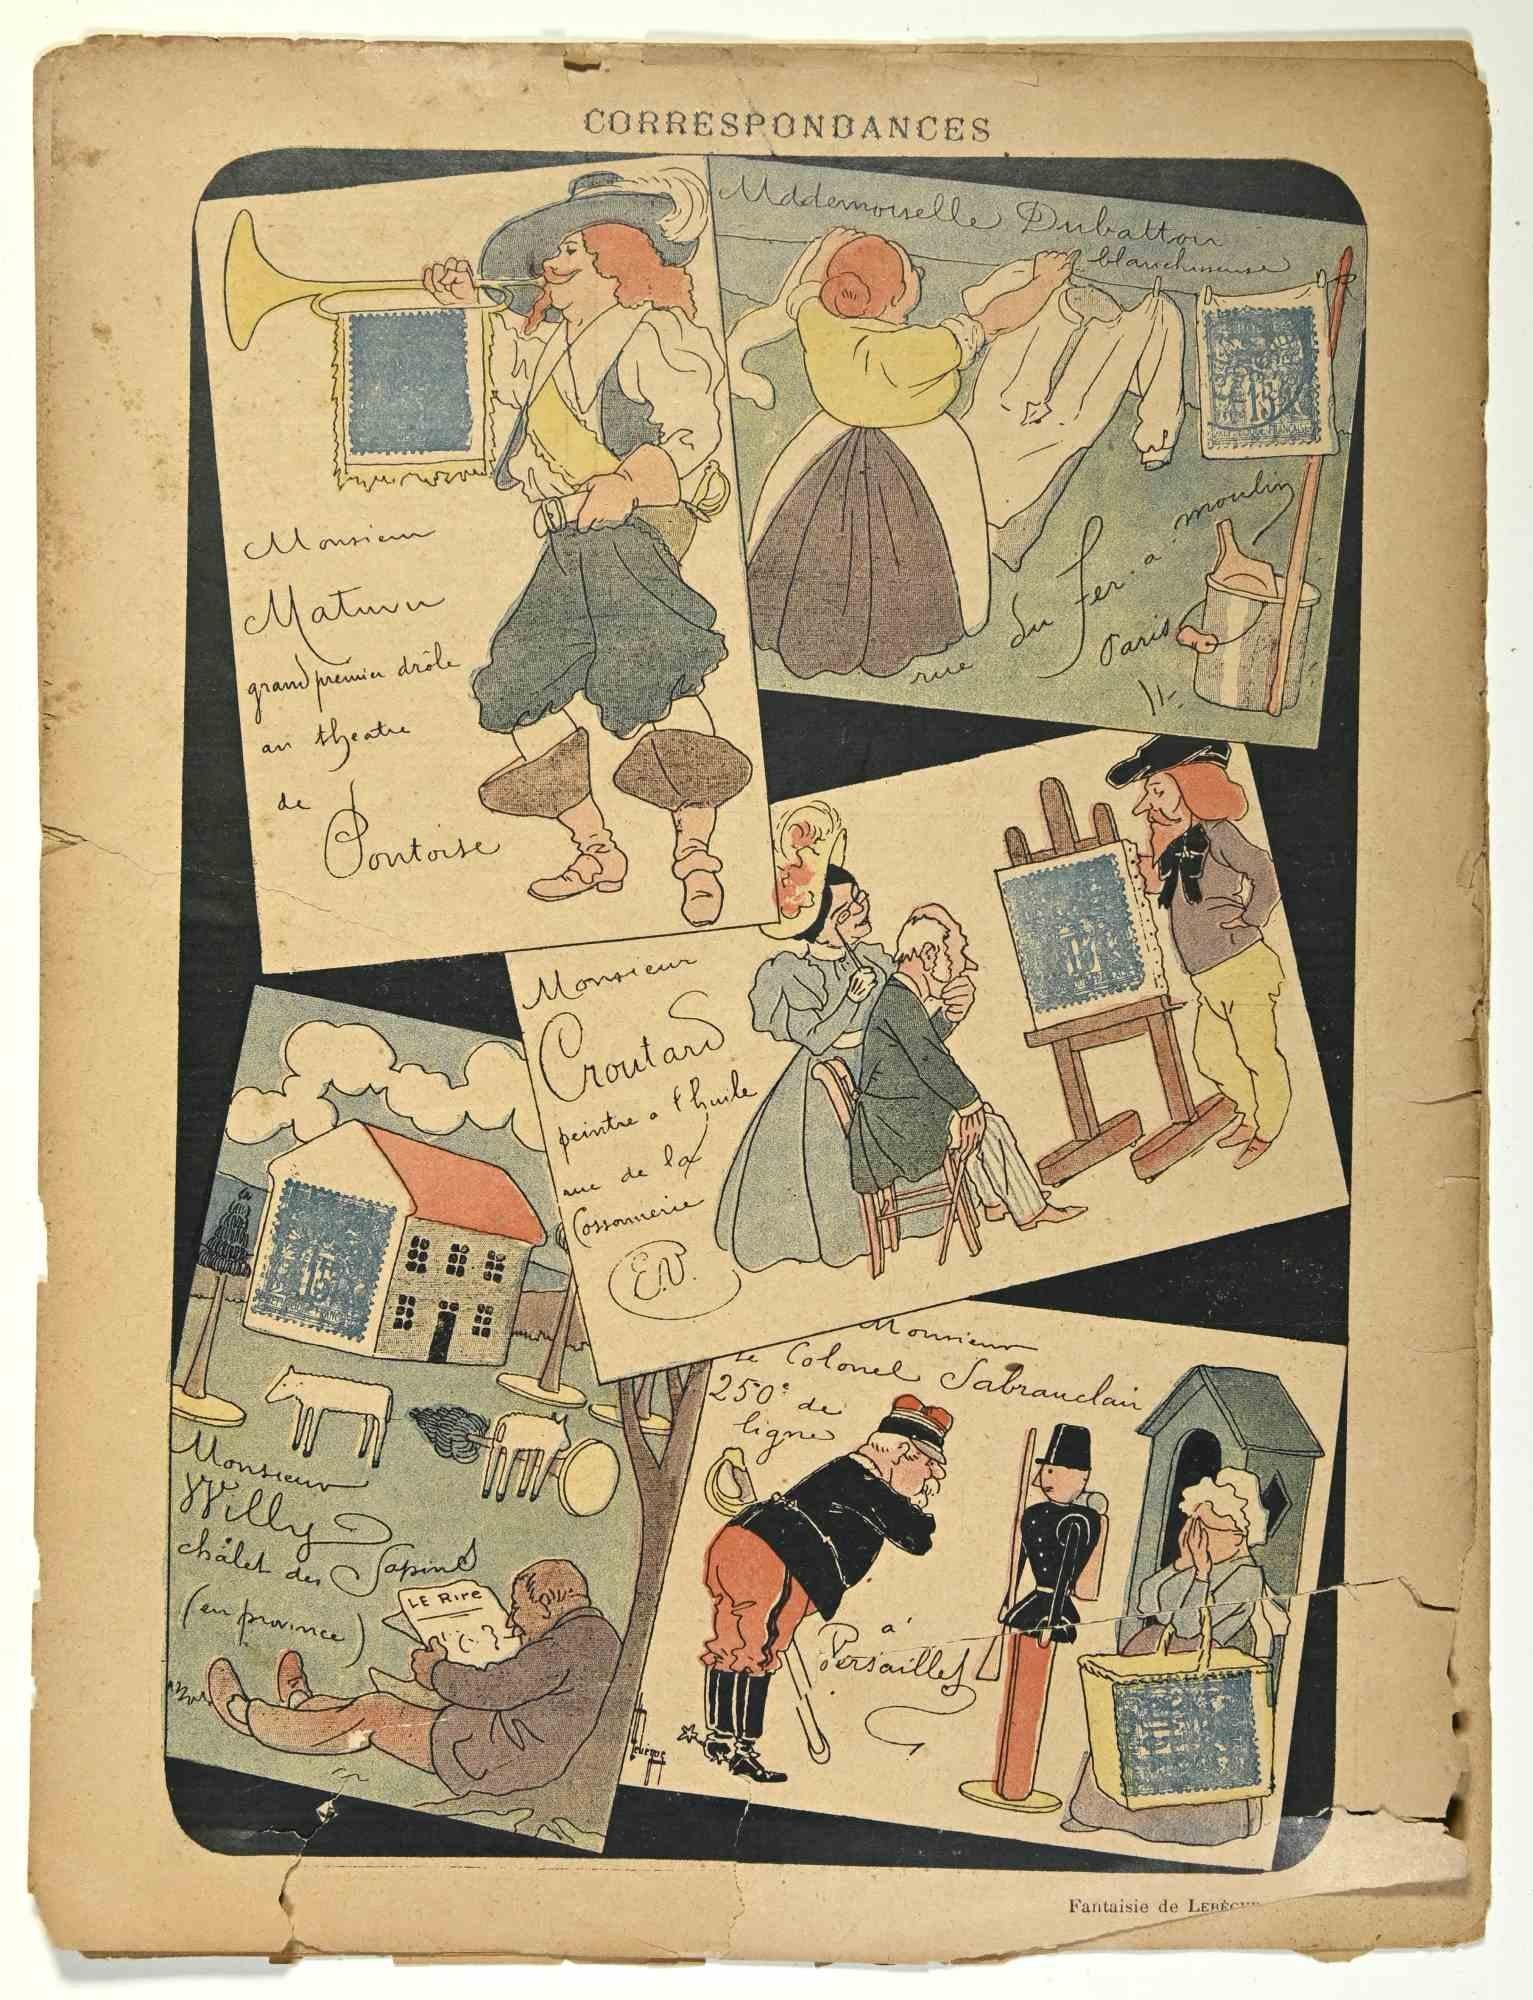 CORRESPONDANCES
Monsieur
Matuvu
grand premier drôle
au theatre
de
Pontoise
Mademoiselle Dubatton
blanchisseuse
rue du Fer à moulin
Paris
15
Monsieur
Croutard
peintre a l'huile
rue de la
Cossonnerie
E.V.
15
Monsieur
Willy
châlet des Sapins
(en province)
LE RIRE
Monsieur
Le Colonel Sabrauclair
250e de
ligne
à
Versailles
Fantaisie de LEBÈGUE